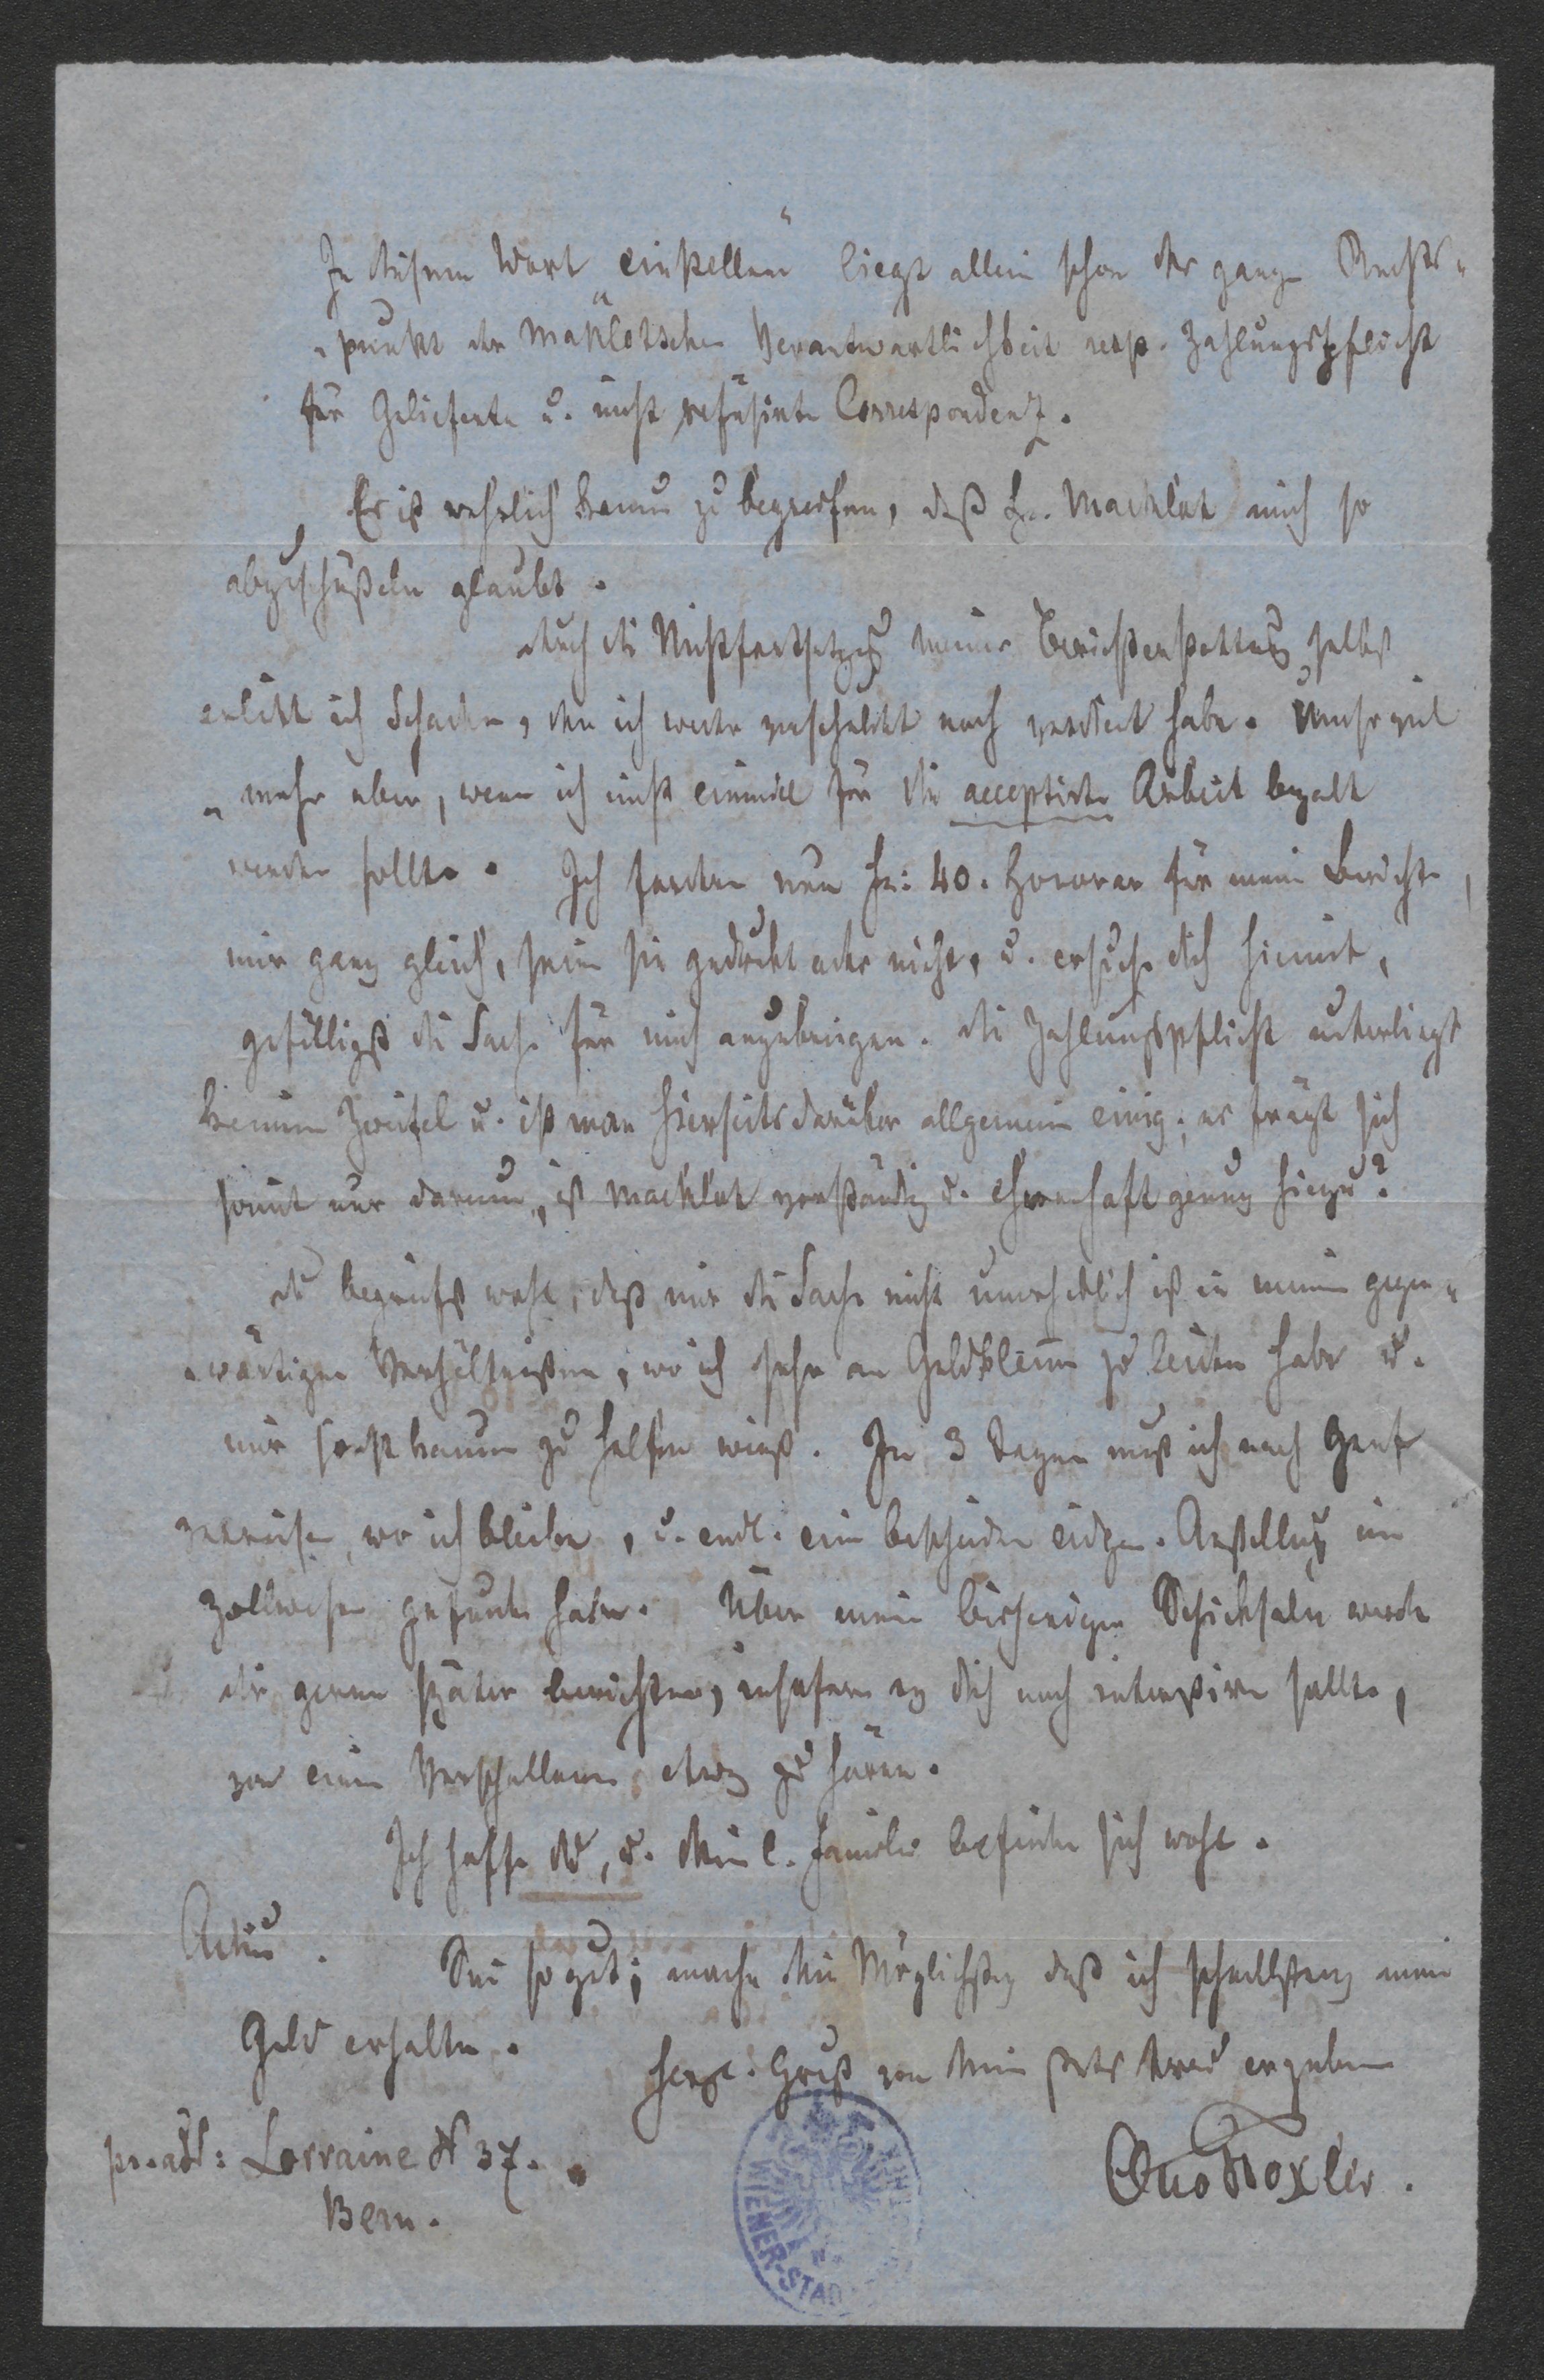 In diesem Wort „einstellen“ liegt allein schon der ganze Rechts-
-punkt der Maklotschen Verantwortlichkeit resp. Zahlungspflicht
für Gelieferte u. nicht refüsirte Correspondenz.
Es ist wahrlich kaum zu begreifen, daß Hr. Macklot mich so
abzuschüßeln glaubt.
Durch die Nichtfortsetzung meiner Berichterstattung selbst
erlitt ich Schaden, den ich weder verschuldet noch verdient habe. Umso viel
-mehr aber, wenn ich nicht einmal für die acceptirte Arbeit bezalt
werden sollte. Ich fordere nun Fr: 40. Honorar für meine Berichte,
mir ganz gleich, seien sie gedruckt oder nicht, u. ersuche dich hiemit,
gefälligst die Sache für mich anzubringen. Die Zahlungspflicht unterliegt
keinem Zweifel u. ist man hierseits darüber allgemein einig; es frägt sich
somit nur darum, ist Macklot verständig u. ehrenhaft genug hiezu?
Du begreifst wohl, daß mir die Sache nicht unerheblich ist in meinen gegen-
-wärtigen Verhältnißen, wo ich sehr an Geldklemme zu leiden habe u.
mir sonst kaum zu helfen weiß. In 3 Tagen muß ich nach Genf
verreisen, wo ich bleibe, u. endl. eine bescheidene eidgen. Anstellung im
Zollwesen gefunden habe. Über meine bisherigen Schicksale werde
dir gerne später berichten, insofern es dich noch interessiren sollte,
von einem Verschollenen etwas zu hören.
Ich hoffe Du, u. Deine l. Familie befinde sich wohl.
Adieu. Sei so gut; mache dein Möglichstes daß ich schnellstens mein
Geld erhalte.
Herzl. Gruß von Deinem stets treu ergebenen
pr. adr: Lorraine N 37.
Otto Troxler.
Bern.
WIENER-STAD